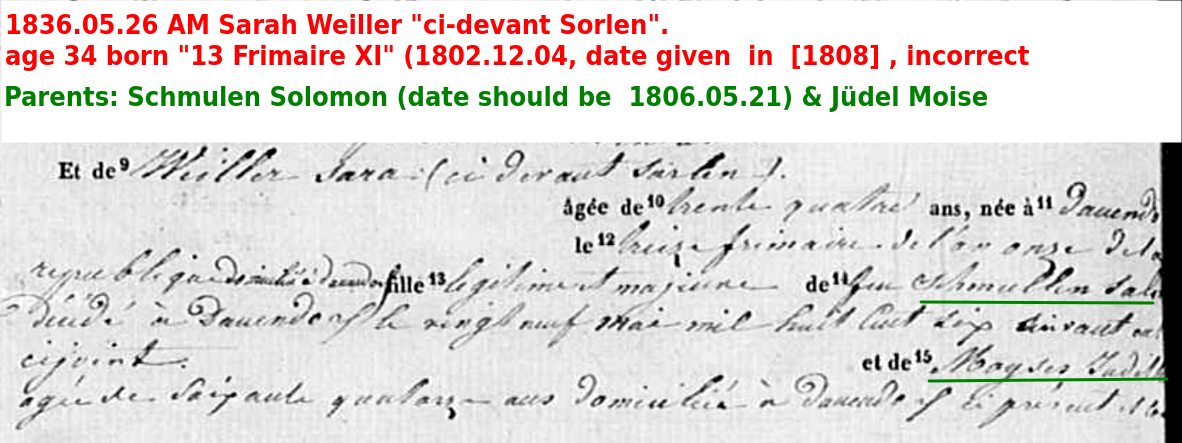 1836.05.26 AM Sarah Weiller "ci-devant Sorlen".
age 34 born "13 Frimaire XI" (1802.12.04, date given in [1808] , incorrect
Parents: Schmulen Solomon (date should be 1806.05.21) & Jüdel Moise
Et de 9 Weiller Sara (ci devant Sarlen).
âgée de 10 trente quatre ans, née à 11 Dauend
le 12 treize frimaire de l'an onze de la
republique domiciliée à fille 13 legitime et majeure de 14 feu Schmullen Sal
décédé à Dauendorf le vingt neuf mai mil huit cent six suivant
cijoint.
et de 15 Moyses Judel
agée de soixante quatorze ans domiciliée à Dauendorf ci présent et